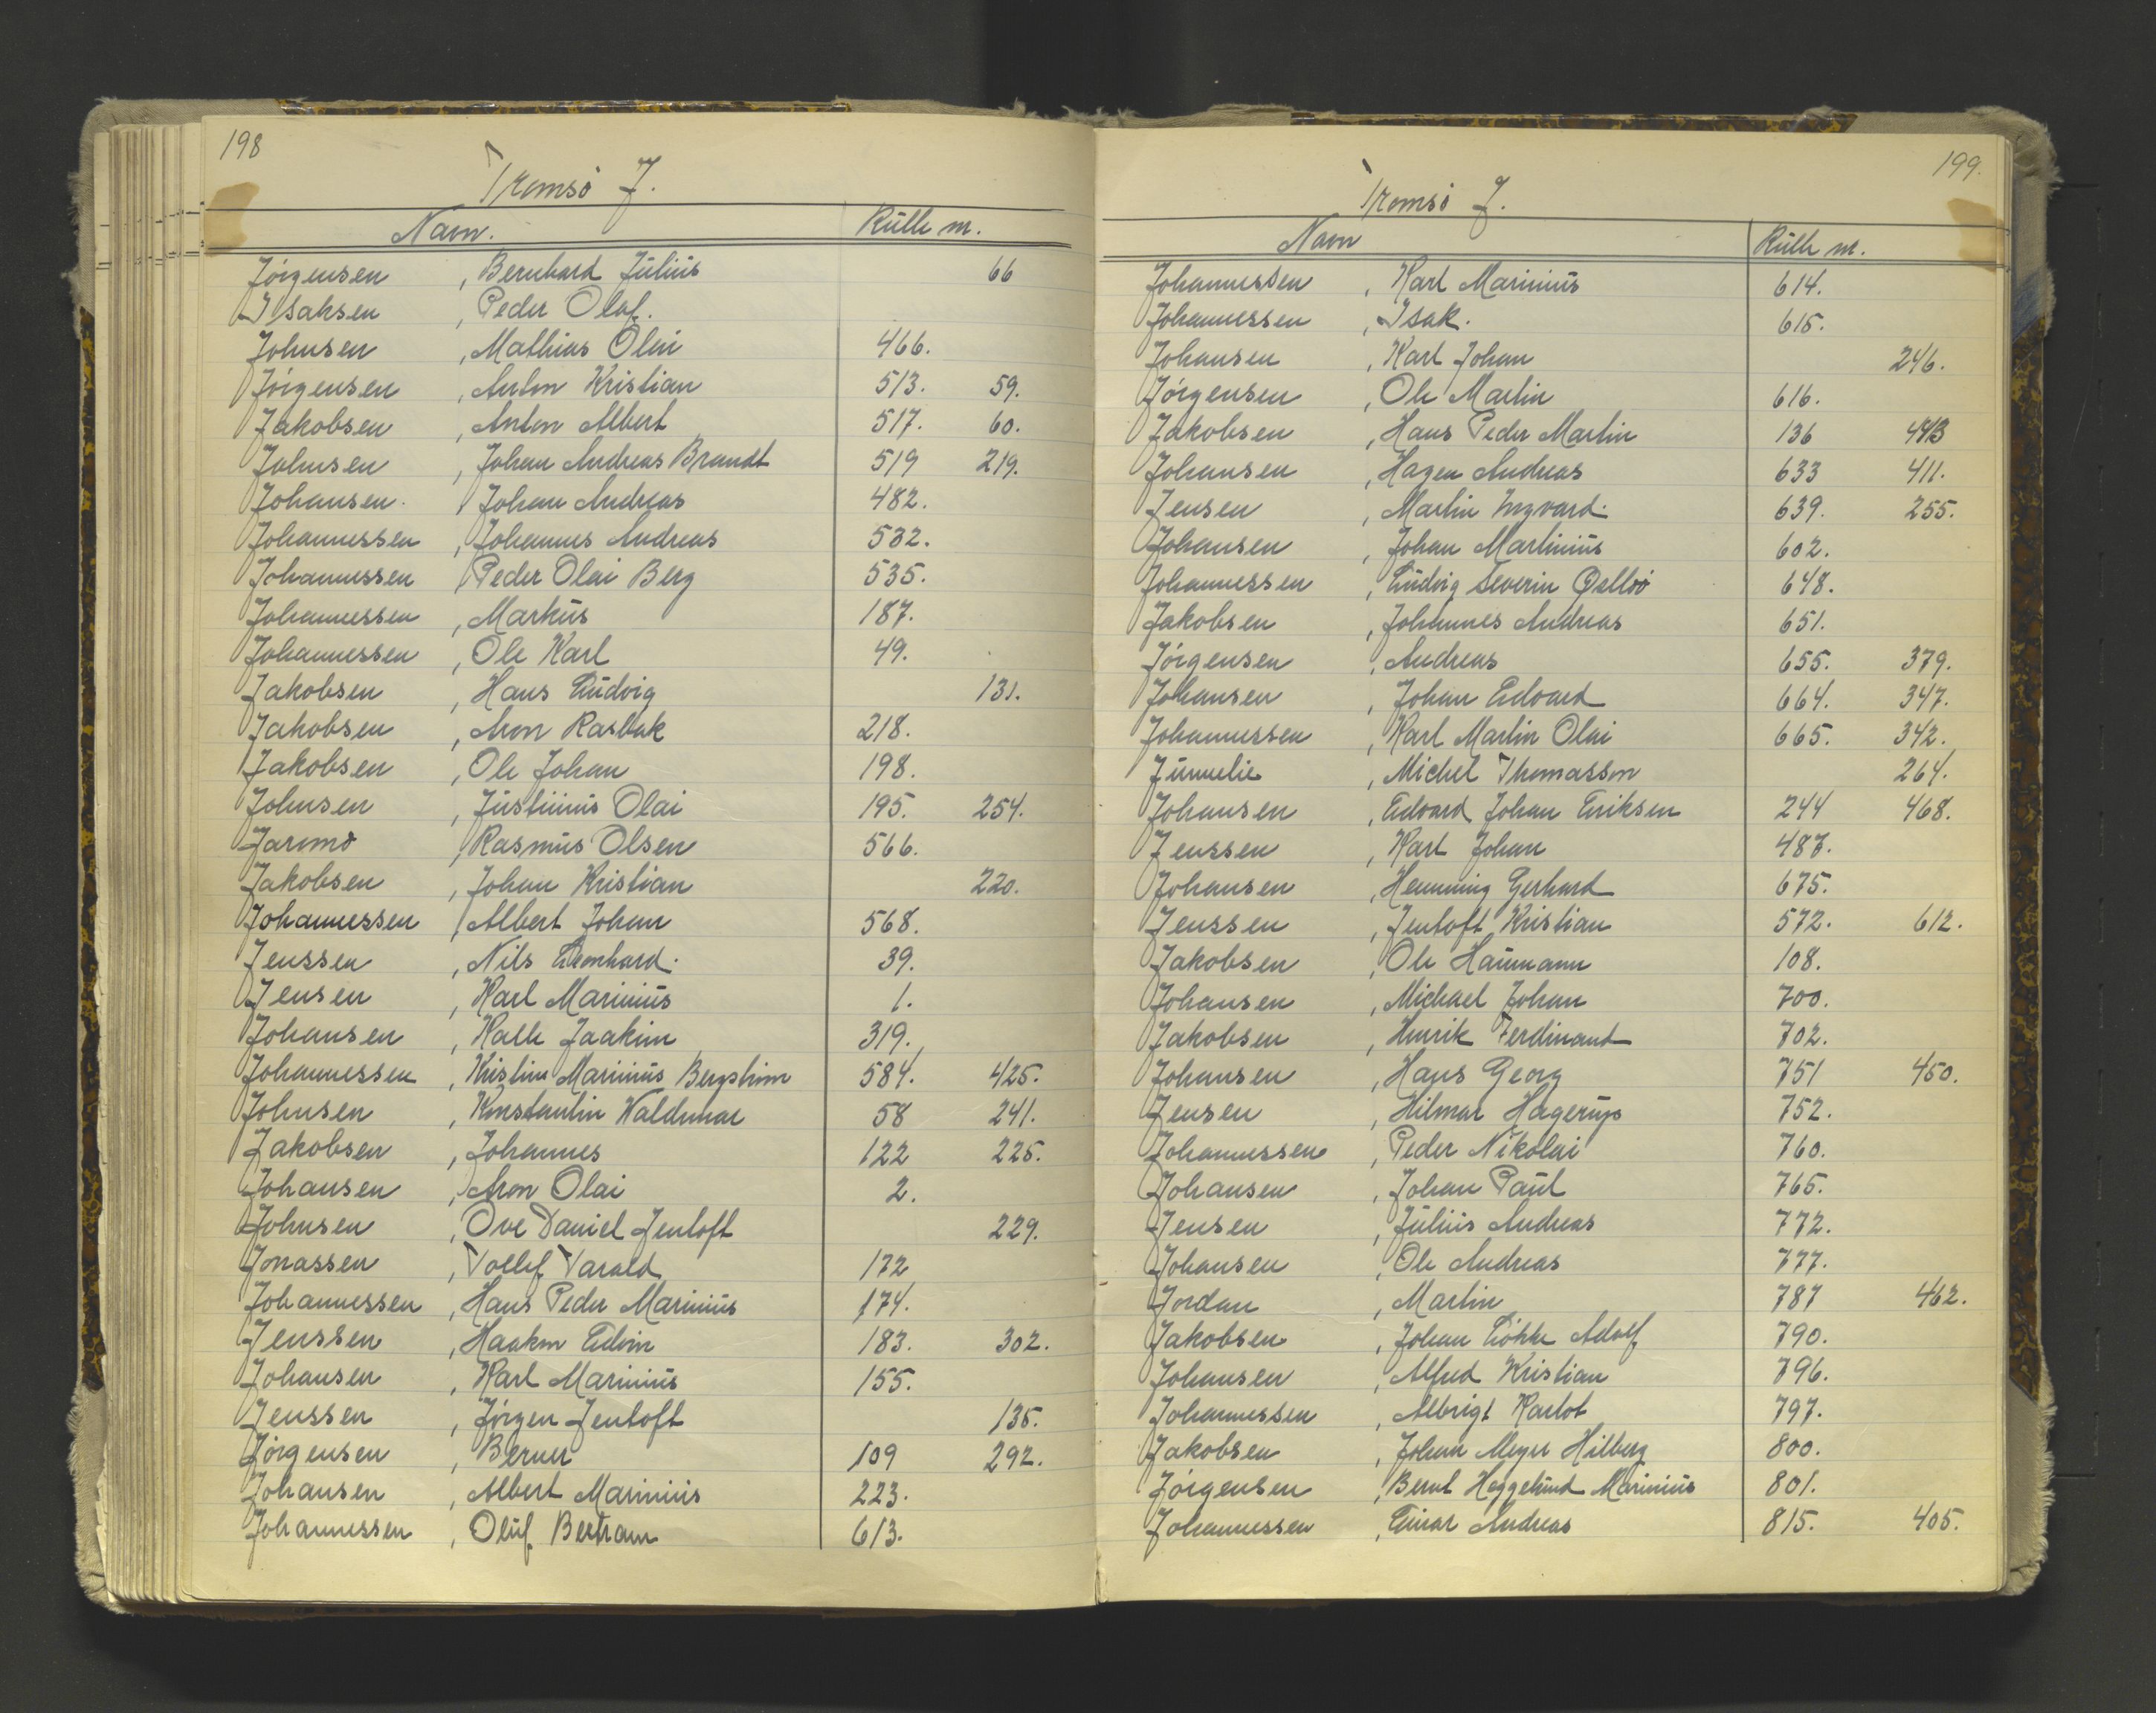 198
Tromsö J.
Navn. Rulle nr.
Jörgensen , Bernhard Julius 66
Isaksen , Peder Olaf.
Johnsen , Mathias Olai 466.
Jörgensen , Anton Kristian 513. 59.
Jakobsen , Anton Albert 517. 60.
Johnsen , Johan Andreas Brandt 519 219.
Johansen , Johan Andreas 482.
Johannessen , Johannes Andreas 532.
Johannessen , Peder Olai Berg 535.
Johannessen , Markus 187.
Johannessen , Ole Karl 49.
Jakobsen , Hans Ludvig 131.
Jakobsen , Aron Rasbak 218.
Jakobsen , Ole Johan 198.
Johnsen , Justinus Olai 195. 254.
Jaromo , Rasmus Olsen 566.
Jakobsen , Johan Kristian 220.
Johannessen , Albert Johan 568.
Jenssen , Nils Leonhard. 39.
Jensen , Karl Marinius 1.
Johansen , Halle Joakim 319.
Johannessen , Kristine Marinius Bergström 584. 425.
Johnsen , Konstantin Waldemar 58 241.
Jakobsen , Johannes 122 225.
Johansen , Aron Olai 2.
Johnsen , Ove Daniel Jentoft 229.
Jonassen , Tollef Tarald 172
Johannessen , Hans Peder Marinius 174.
Jenssen , Haakon Edvin 183. 302.
Johansen , Karl Marinius 155.
Jenssen , Jörgen Jentoft 135.
Jörgensen , Berner 109 292.
Johansen , Albert Marinius 223.
Johannessen , Oluf Bertram 613.
199.
Tromsö J.
Navn Rulle nr.
Johannessen , Karl Marinius 614.
Johannessen , Isak. 615.
Johansen , Karl Johan 246.
Jörgensen , Ole Martin 616.
Jakobsen , Hans Peder Martin 136
Johansen , Hagen Andreas 633 411.
Jensen , Martin Ingvard. 639. 255.
Johansen , Johan Martinius 602.
Johannessen , Ludvig Severin 648.
Jakobsen , Johannes Andreas 651.
Jörgensen , Andreas 655. 379.
Johansen , Johan Edvard 664. 347.
Johannessen , Karl Martin Olai 665. 342.
Junnelie , Michel Thomasson 264.
Johansen , Edvard Johan Eriksen 244 468.
Jenssen , Karl Johan 487.
Johansen , Henning Gerhard 675.
Jenssen , Jentoft Kristian 572. 612.
Jakobsen , Ole Haumann 108.
Johansen , Michael Johan 700.
Jakobsen , Henrik Ferdinand 702.
Johansen , Hans Georg 751 450.
Jensen , Hilmar Hagerup 752.
Johannessen , Peder Nikolai 760.
Johansen , Johan Paul 765.
Jensen , Julius Andreas 772.
Johansen , Ole Andreas 777.
Jordan , Martin 787 462.
Jakobsen , Johan Lökke Adolf 790.
Johansen , Alfred Kristian 796.
Johannessen , Albrigt Karlot 797.
Jakobsen , Johan Meyer Hilberg 800.
Jörgensen , Bernt Heggelund Marinius 801.
Johannessen , Einar Andreas 815. 405.